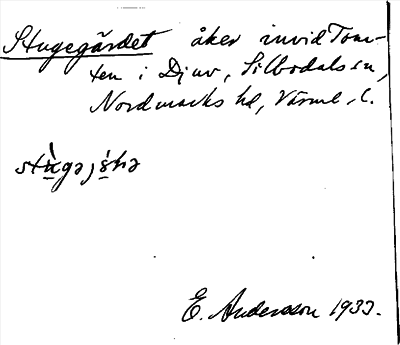 Stugegärdet åker invid Tom-
ten i Djuv, Silbodals sn,
Nordmarks hd, Värml. l.
E. Andersson 1933.